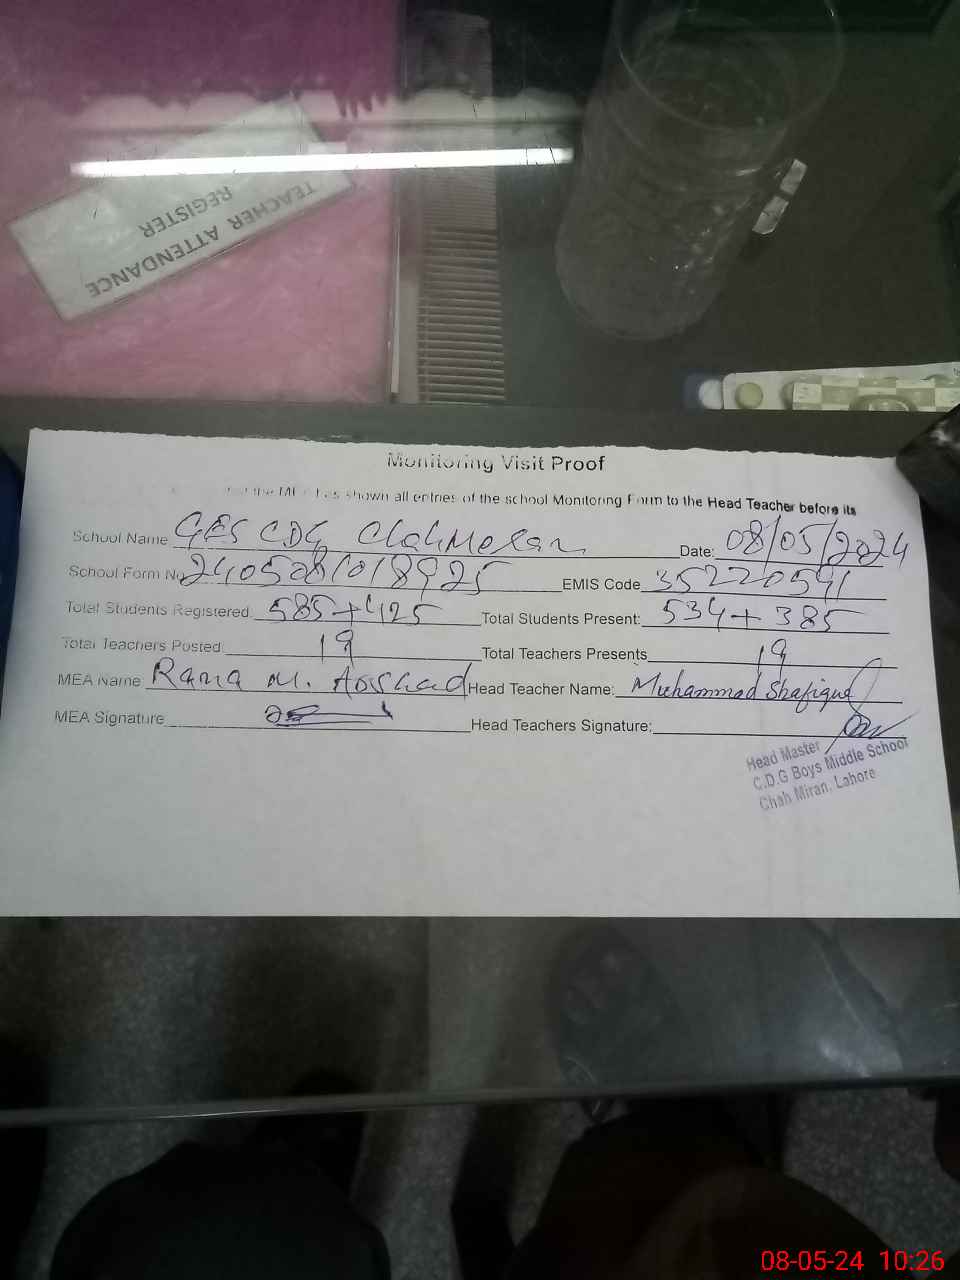 TEACHER ATTENDANCE
REGISTER
Monitoring Visit Proof
the MEA has shown all entries of the school Monitoring Form to the Head Teacher before its
School Name GES CDG Date: 08/05/2024
School Form No 2405081018925 EMIS Code 35220541
Total Students Registered: 585+425 Total Students Present: 534+385
Total Teachers Posted: 19 Total Teachers Presents 19
MEA Name Rana M. Arshad Head Teacher Name: Muhammad Shafique
MEA Signature Head Teachers Signature:
Head Master
C.D.G Boys Middle School
Chah Miran, Lahore
08-05-24 10:26